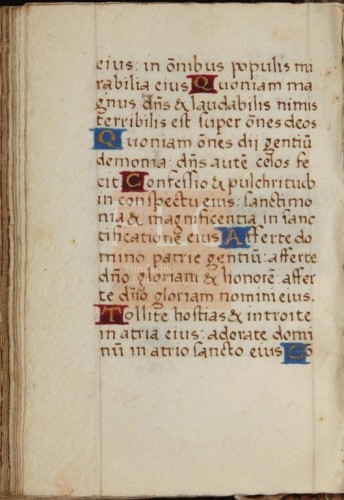 eius: in o͞nibus populis mi
rabilia eius Quoniam ma
gnus dn̄s & laudabilis nimis
terribilis est super o͞nes deos
Quoniam o͞nes dij gentiū
demonia: dn̄s autē celos fe
cit Confessio & pulchritud
in conspectu eius: sanctimo
nia & magnificentia in sanc
tificatione eius Afferte do
mino patrie gentiū: afferte
dn̄o gloriam & honorē: affer
te dn̄o gloriam nomini eius.
Tollite hostias & introite
in atria eius: adorate domi
nū in atrio sancto eius Co